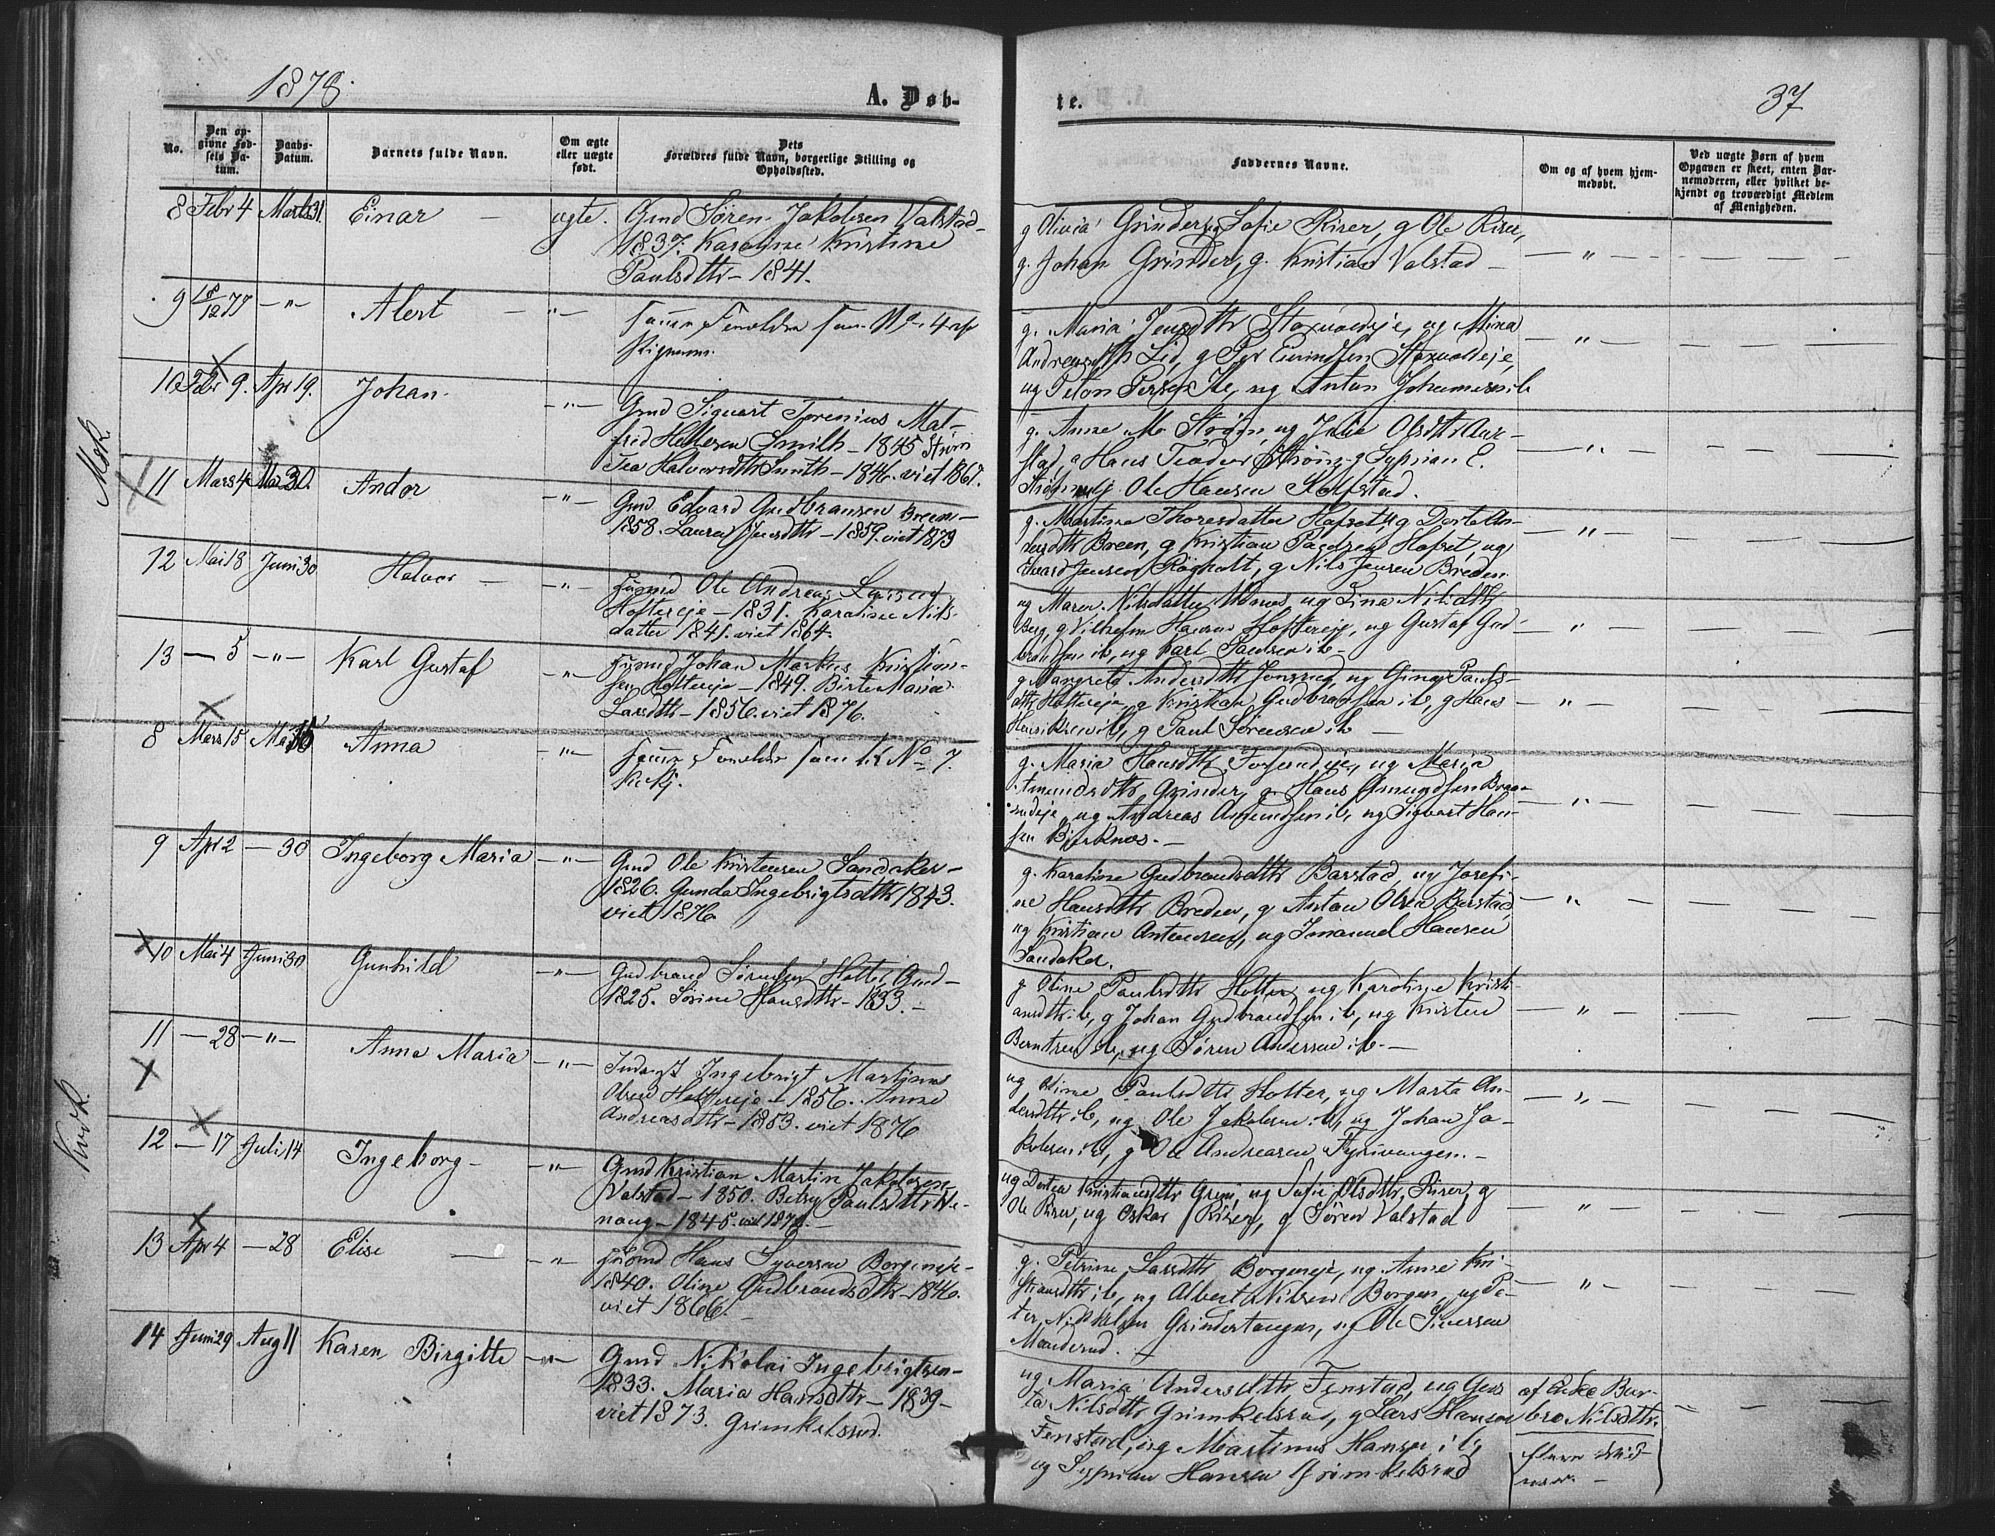 1878.
A. Døb-
te.
37
No.
Den op-
givne Fød-
sels Da-
tum.
Daabs-
Datum.
Barnets fulde Navn.
Om ægte
eller uægte
født.
Dets
Forældres fulde Navn, borgerlige Stilling og
Opholdssted.
Faddernes Navne.
Om og af hvem hjem-
medøbt.
Ved uægte Børn af hvem
Opgaven er skeet, enten Bar-
nemoderen, eller hvilket be-
kjendt og troværdigt Medlem
af Menigheden.
8 Febr 4 Marts 31 Einar — ægte. Gmd Søren Jakobsen Valstad-
1837. Karoline Kristine
Paulsdtr - 1841.
g Olivia Grinder, ug Sofie Riser, g Ole Riser,
g. Johan Grinder, g. Kristian Valstad — — " —
9 18/12 77 — " — Alert — — " — Samme Forældre som No 4 af
g. Maria Jensdtr ug Mina
Andreasdtr Lid, g
ug Anton Johannesen ib — " —
Mok.
10 Febr 9. Apr 19. Johan — " — Gmd Siguart Torenius Mal-
fred Hellesen Smith - 1845 Strøm
Tea Halvorsdtr Smith - 1846. viet 1867.
g. Anne Mo Strøm, ug Julie Olsdtr Aar-
stad, g Hans Teodor Strøm, g Syprian E.
Strøm, ug Ole Hansen Kolfstad. — " —
11 Mars 4 30. Andor — " — Gmd Edvard Gudbransen Breen -
1858. Laura Jensdtr - 1859. viet 1873
g. Martine Thoresdatter Hofset, ug Dorte An-
dersdtr Breen, g Kristian Paulsen Hofset, ug
Edvard Jensen Ragholt, g Nils Jensen Breden. — " —
12 Mai 18 Juni 30 Halvor — — " — Husmd Ole Andreas
Holtereje - 1831. Karoline Nils-
datter 1841. viet 1864.
ug Maren Nilsdatter ug Lina Nilsdtr
Berg, g Vilhelm Hansen Holtereje, ug Gustaf Gud-
brandsen ib, ug Karl Paulsen ib - — " —
13 — 5 — " — Karl Gustaf — " — Husmd Johan Markus Kristian-
sen Holtereje - 1849. Birte Maria
Larsdtr - 1856. viet 1876.
g Margrete Andersdtr Jonsrud, ug Gina Pauls-
dtr Holtereje, g Kristian Gudbrandsen ib, g Hans
Henriksen ib, g Paul Sørensen ib — — " —
8 Mars 15 Anna — " — Samme Forældre som No 7.
g. Maria Hansdtr ug Maria
Amundsdtr Grinder, g. Hans Amundsen Braa-
ug Andreas Amundsen ib, ug Sigvart Han-
sen Bjørknes. — — " —
9 Apr 2 — 30 Ingeborg Maria — " — Gmd Ole Kristensen Sandaker -
1826. Gunda Ingebrigtsdtr 1843.
viet 1876
g. Karoline Gudbrandsdtr Barstad, ug Josefi-
ne Hansdtr Breden, g Anton Olsen Barstad,
ug Kristian Antonsen, ug Imanuel Hansen
Sandaker. — " —
10 Mai 4 Juni 30 Gunhild — " — Gudbrand Sørensen Holter Gmd -
1825. Sørine Hansdtr - 1833. —
g Oline Paulsdtr Holter, ug Karoline Kristi-
ansdtr ib, g Johan Gudbrandsen ib, ug Kristen
Berntsen ib, ug Søren Andersen ib. — — " —
Kirk.
11 — 28 — " — Anna Maria — " — Inderst Ingebrigt Martinus
Olsen Holtereje - 1856. Anne
Andreasdtr - 1853. viet 1876
ug Oline Paulsdtr Holter, ug Marta An-
dersdtr ib, ug Ole Jakobsen ib, ug Johan Ja-
kobsen ib, g Ole Andreasen — " —
12 — 17 Juli 14 Ingeborg — — " — Gmd Kristian Martin Jakobsen
Valstad - 1850. Betsy Paulsdtr
1845.
ug Dortea Kristiansdtr Greni, ug Sofie Olsdtr Riser, g
Ole Riser, ug Oskar Riser, g Søren Valstad — " —
13 Apr 4 — 28 Elise — — " — Husmd Hans Syversen Borgeneje -
1840. Oline Gudbrandsdtr - 1846.
viet 1866.
g. Petrine Larsdtr Borgeneje, ug Anne Kri-
stiansdtr ib, ug Albert Nilsen Borgen, ug Pe-
ter Nikolai ug Ole Siversen
Manderud. — — " —
14 Juni 29 Aug 11 Karen Birgitte — " — Gmd Nikolai Ingebrigtsen -
1833. Maria Hansdtr - 1839 -
viet 1873. Grimkelsrud.
ug Maria Andersdtr Fenstad, ug Gus
ta Nilsdtr Grimkelsrud, g Lars Hansen
Fenstad, ug Martinus Hansen ib,
ug Syprian Hansen Grimkelsrud
af Enke Bar-
bro Nilsdtr.